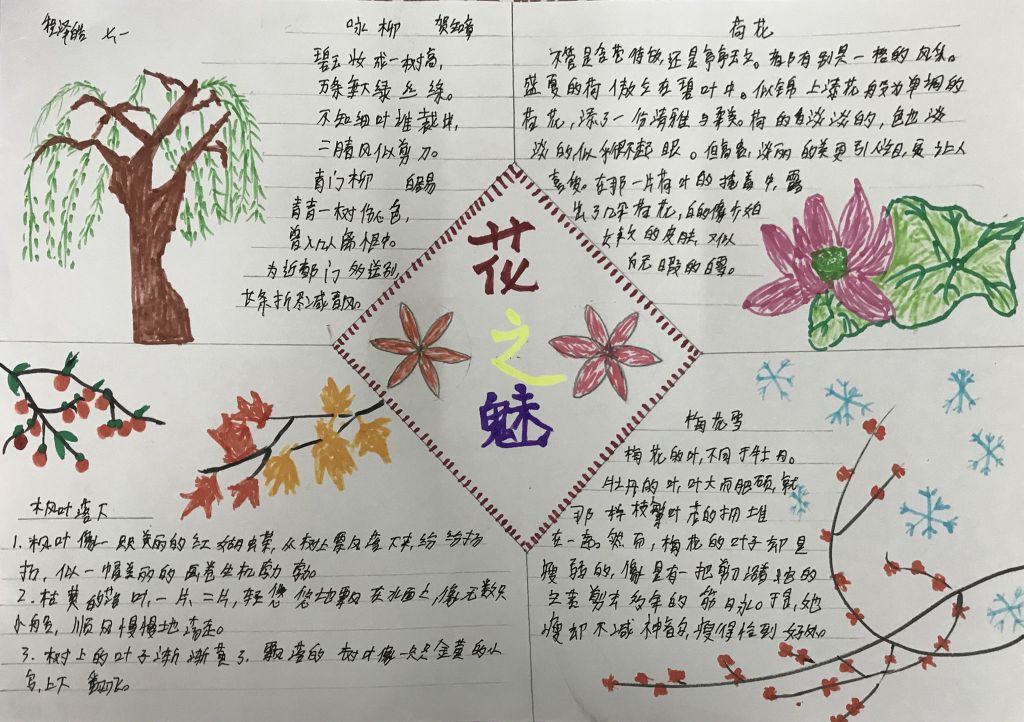 程泽皓 七一
咏柳 贺知章
碧玉妆成一树高,
万条垂下绿丝绦。
不知细叶谁裁出,
二月春风似剪刀。
青门柳 白居易
青青一树伤心色,
曾入几人离恨中。
为近都门多送别,
长条折尽减春风。
荷花
不管是含苞待放,还是亭亭玉立。都有别具一格的风采。
盛夏的荷傲立在碧叶中。似锦上添花般为单调的
荷花,添了一份清雅与柔美。荷的色淡淡的,色也淡
淡的似乎很不起眼。但高贵,淡雅的美更引人注目,更让人
喜爱。在那一片荷叶的掩盖中,露
出了几朵荷花,白的像介绍
女孩的皮肤,又似
无暇的白雪。
花
之
魅
枫叶落下
1. 枫叶像一只只美丽的红蝴蝶,从树上飘落下来,纷纷扬
扬,似一幅美丽的画卷生机勃勃。
2. 枯黄的落叶,一片,二片,轻悠悠地飘在水面上,像无数只
小舟,顺风慢慢地漂走。
3. 树上的叶子渐渐黄了,飘落的树叶像一只只金黄的小
鸟,上下翻飞。
梅花雪
梅花的叶,不同于牡丹。
牡丹的叶,叶大而肥硕,就
那样枝繁叶茂的拥堆
在一起。然而,梅花的叶子却是
瘦弱的,像是有一把剪刀
瘦却不减神韵,瘦得恰到好处。